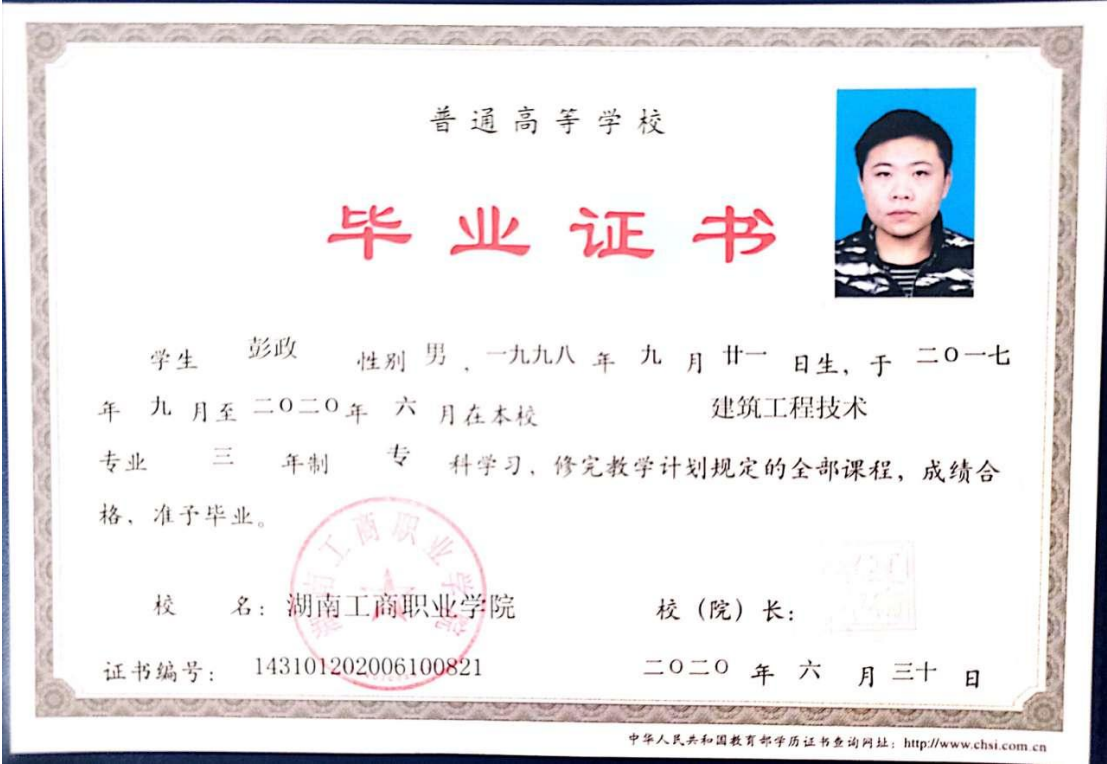 普通高等学校
毕业证书
学生 彭政 性别 男、一九九八 年 九 月 廿一 日生，于 二〇一七
年 九 月至 二〇二〇 年 六 月在本校 建筑工程技术
专业 三 年制 专 科学习、修完教学计划规定的全部课程，成绩合
格、准予毕业。
湖南工商职业学院
校 名：湖南工商职业学院 校（院）长：
证书编号： 143101202006100821 二〇二〇 年 六 月 三十 日
中华人民共和国教育部学历证书查询网址：http://www.chsi.com.cn